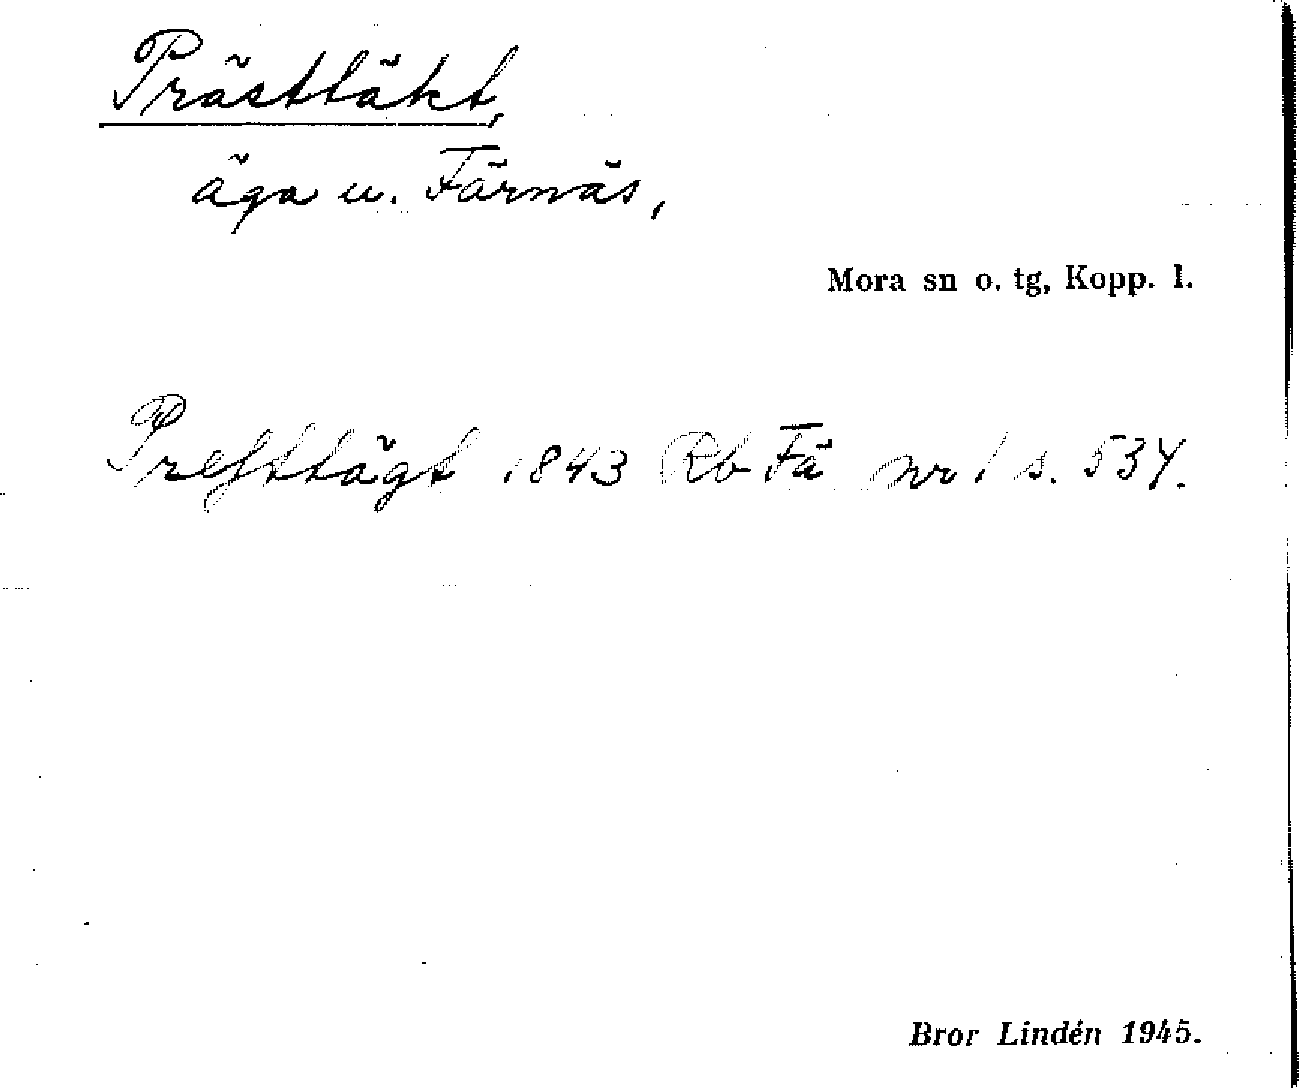 Prästtäkt,
äga u. Färnäs,
Mora sn o. tg, Kopp. l.
Presttägt 1843 Rb Fä nr 1 s. 534.
Bror Lindén 1945.